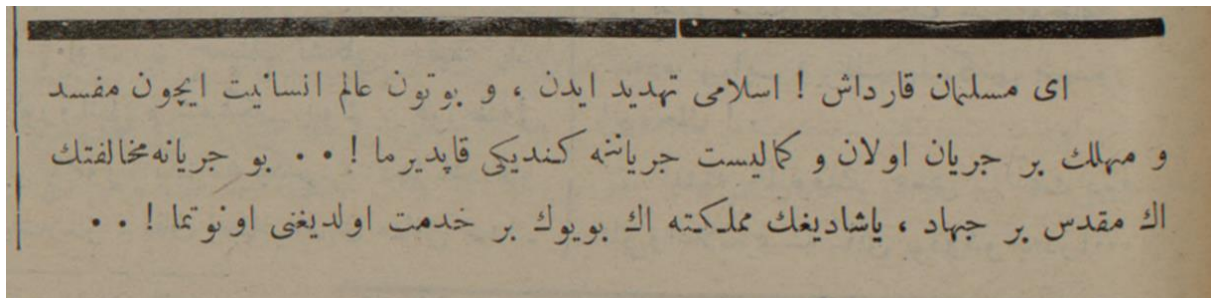 ای مسلمان قارداش ! اسلامی تهدید ایدن ، و بوتون عالم انسانیت ایچون مفسد
و مهلك بر جریان اولان و كمالیست جریاننه كندیكی قاپدیرما ! . . بو جریانه مخالفتك
اك مقدس بر جهاد ، یاشادیغك مملكته اك بویوك بر خدمت اولدیغنی اونوتما ! . .